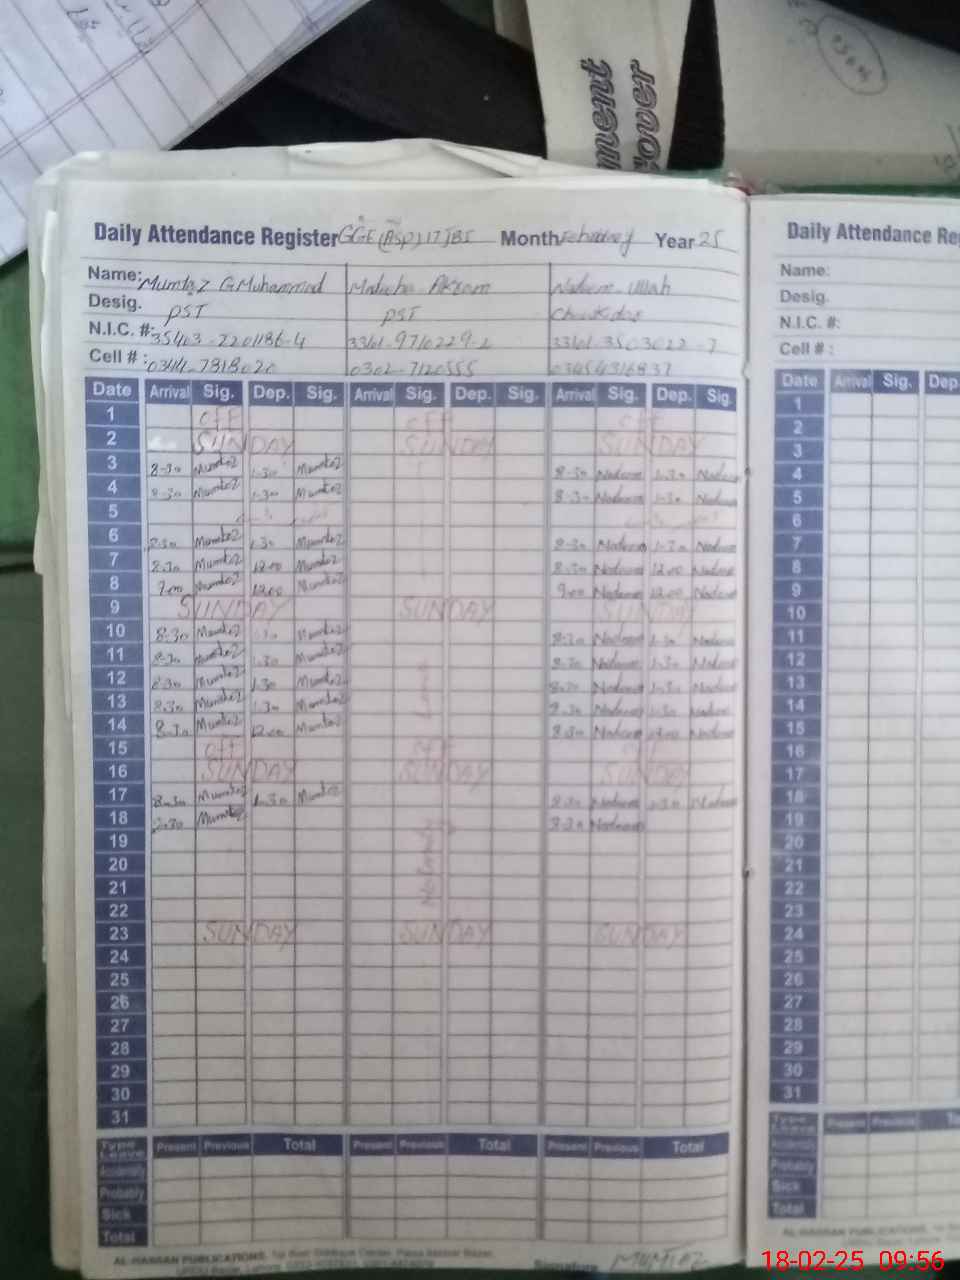 ment
over
Daily Attendance Register GGE (ASP) 17JBI Month February Year 25
Name: Mumtaz G.Muhammad Akram Nadeem Ullah
Desig. PST PST Chowkidar
N.I.C. #: 35403-7201186-4 3301-9710229-2 33101-3503022-7
Cell # : 0344-7818020 0302-7120555 03454316837
Date Arrival Sig. Dep. Sig. Arrival Sig. Dep. Sig. Arrival Sig. Dep. Sig.
1 off off off
2 SUNDAY SUNDAY SUNDAY
3 8-30 Mumtaz 1-30 Mumtaz 8-30 Nadeem 1-30 Nadeem
4 8-30 Mumtaz 1-30 Mumtaz 8-30 Nadeem 1-30 Nadeem
5
6 8-30 Mumtaz 1-30 Mumtaz 8-30 Nadeem 1-30 Nadeem
7 8-30 Mumtaz 12.00 Mumtaz 8-30 Nadeem 12.00 Nadeem
8 9.00 Mumtaz 12.00 Mumtaz 9-00 Nadeem 12.00 Nadeem
9 SUNDAY SUNDAY SUNDAY
10 8-30 Mumtaz 1-30 Mumtaz 8-30 Nadeem 1-30 Nadeem
11 8-30 Mumtaz 1-30 Mumtaz 8-30 Nadeem 1-30 Nadeem
12 8-30 Mumtaz 1-30 Mumtaz 8-30 Nadeem 1-30 Nadeem
13 8-30 Mumtaz 1-30 Mumtaz 8-30 Nadeem 1-30 Nadeem
14 8-30 Mumtaz 12.00 Mumtaz 8-30 Nadeem 12.00 Nadeem
15 off off off
16 SUNDAY SUNDAY SUNDAY
17 8-30 Mumtaz 1-30 Mumtaz 8-30 Nadeem 1-30 Nadeem
18 8-30 Mumtaz 8-30 Nadeem
19
20
21
22
23 SUNDAY SUNDAY SUNDAY
24
25
26
27
28
29
30
31
Type Leave Present Previous Total Present Previous Total Present Previous Total
Accidently
Probably
Sick
Total
AL-HASSAN PUBLICATIONS,
Signature MUMTAZ
Daily Attendance Re
Name:
Desig.
N.I.C. #:
Cell # :
Date Arrival Sig. Dep.
1
2
3
4
5
6
7
8
9
10
11
12
13
14
15
16
17
18
19
20
21
22
23
24
25
26
27
28
29
30
31
Type Leave Present Previous
Accidently
Probably
Sick
Total
AL-HASSAN PUBLICATIONS,
18-02-25 09:56